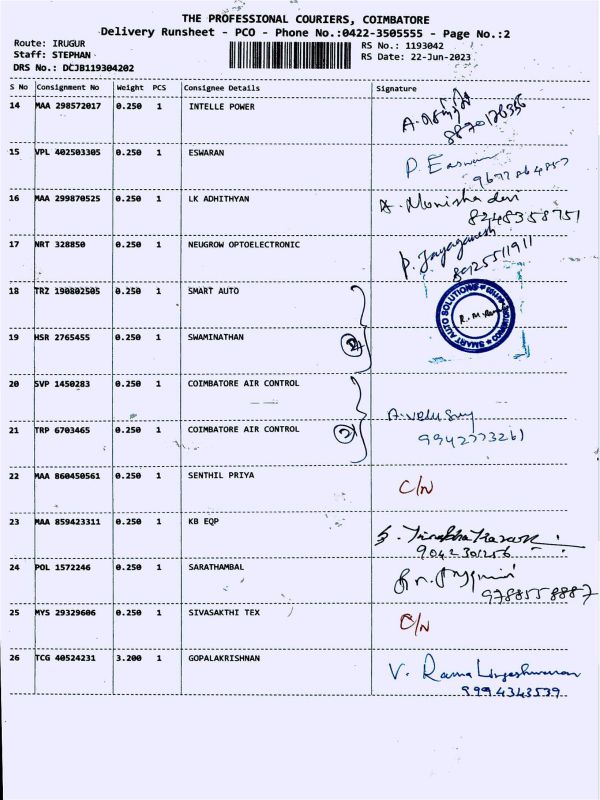 THE PROFESSIONAL COURIERS, COIMBATORE
Delivery Runsheet - PCO - Phone No.:0422-3505555 - Page No.:2
Route: IRUGUR
Staff: STEPHAN
DRS No.: DCJB119304202
RS No.: 1193042
RS Date: 22-Jun-2023
S No Consignment No Weight PCS Consignee Details Signature
14 MAA 298572017 0.250 1 INTELLE POWER
8870126356
15 VPL 402503305 0.250 1 ESWARAN P. Easwaran
16 MAA 299870525 0.250 1 LK ADHITHYAN A. Monisha devi
8248358751
17 NRT 328850 0.250 1 NEUGROW OPTOELECTRONIC P. Jayaganesh
8925511911
18 TRZ 190802505 0.250 1 SMART AUTO SMART AUTO SOLUTIONS
19 HSR 2765455 0.250 1 SWAMINATHAN 2
20 SVP 1450283 0.250 1 COIMBATORE AIR CONTROL
21 TRP 6703465 0.250 1 COIMBATORE AIR CONTROL 2 A. velu
9942773261
22 MAA 860450561 0.250 1 SENTHIL PRIYA C/N
23 MAA 859423311 0.250 1 KB EQP
9042301256
24 POL 1572246 0.250 1 SARATHAMBAL
9788558887
25 MYS 29329606 0.250 1 SIVASAKTHI TEX C/N
26 TCG 40524231 3.200 1 GOPALAKRISHNAN V. Rama Lingeshwaran
9994343539